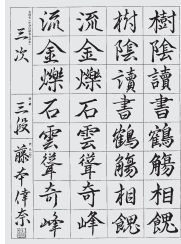 樹陰讀書鶴觴相餽
樹陰讀書鶴觴相餽
流金爍石雲聳奇峰
流金爍石雲聳奇峰
三次 三段 藤本偉奈